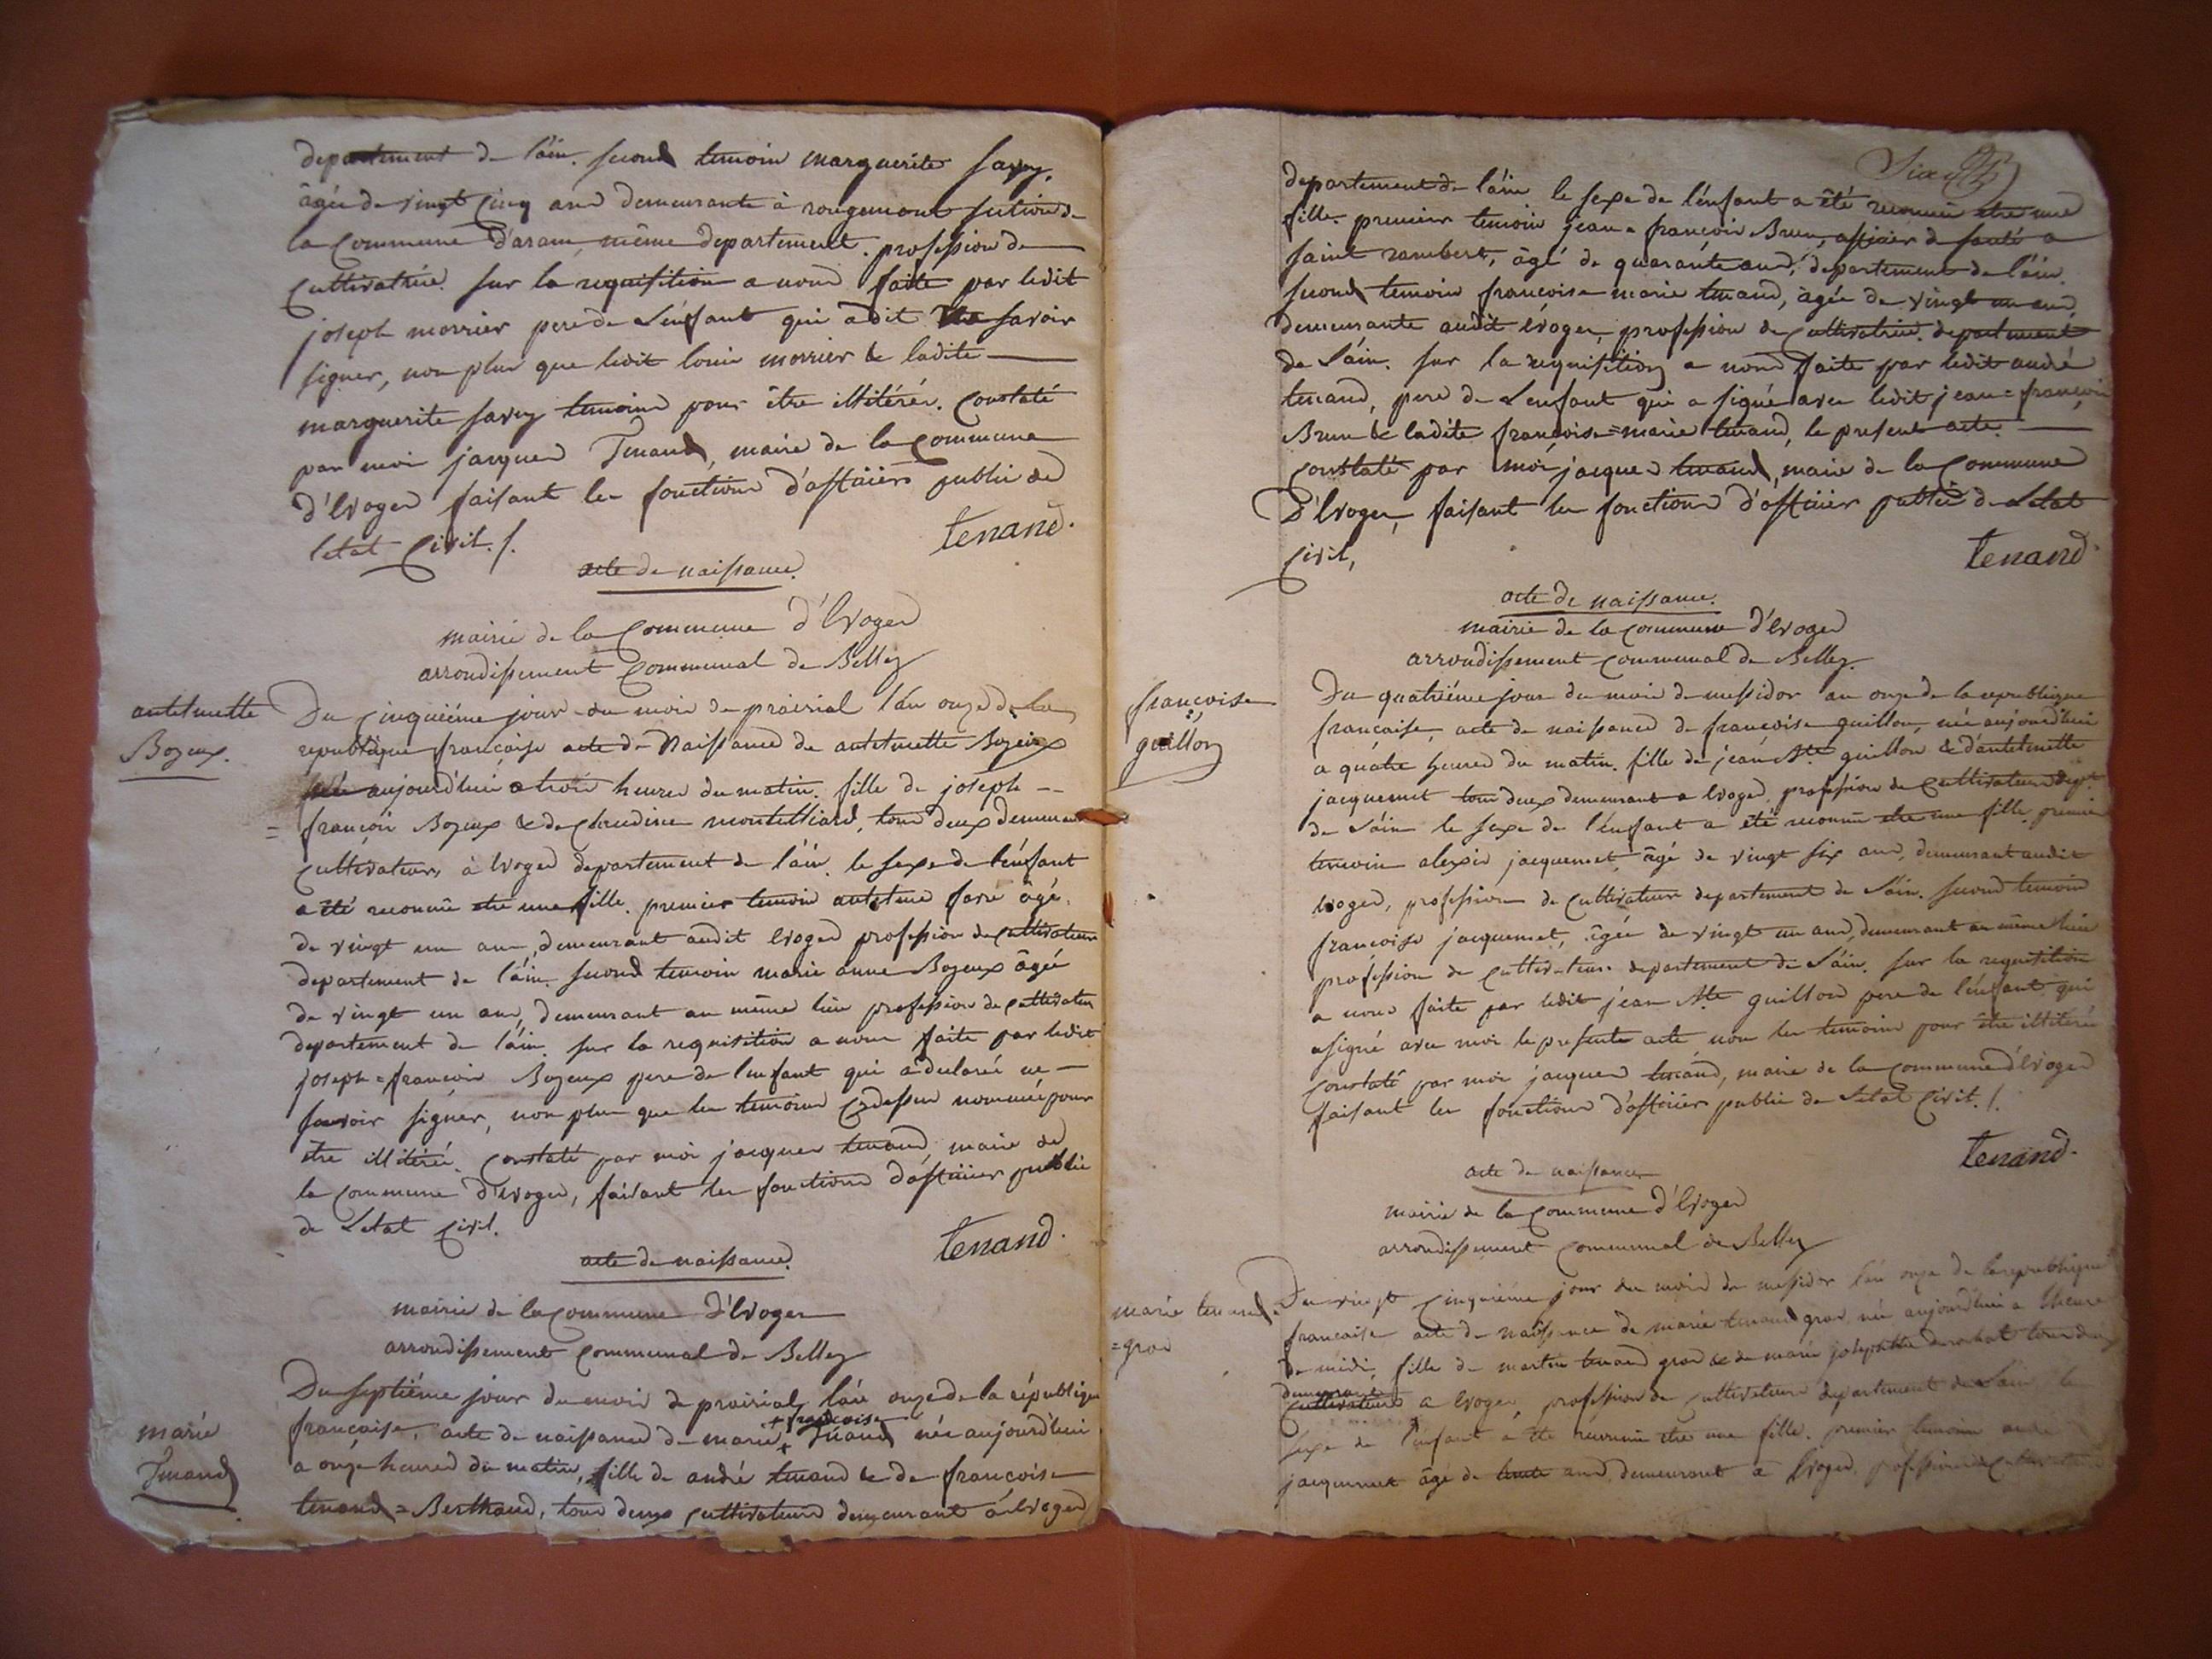 departement de láin. second temoin marguerite savey,
âgée de vingt cinq ans demeurante à rougemont section de
la commune d'aran même departement. profession de
cultivatrice. sur la requisition a nous faite par ledit
joseph morrier pere de L'énfant qui a dit savoir
signer, non plus que ledit louis morrier & ladite
marguerite savey temoins pour être illitérés. Constaté
par moi jacques Tenand, maire de la commune
d'Evoges faisant les fonctions d'officier public de
letat Civil./.
tenand.
acte de naissance.
mairie de la commune d'Evoges
arrondissement communal de Belley
antelmette
Bozeux.
Du cinquiéme jour du mois de prairial lán onze de la
republique françaisse acte de Naissance de antelmette Bozeux
née aujourd'hui a trois heures du matin. fille de joseph --
= françois Bozeux & de Claudine montilliard, tous deux demeurant
cultivateurs à Evoges departement de láin. le sexe de l'énfant
a été reconnu etre une fille. premier temoin antelme favre âgé.
de vingt un ans, demeurant audit Evoges profession de cultivateur
departement de láin. second temoin marie anne Bozeux âgée
de vingt un ans, demeurant au même lieu profession de cultivateur
departement de láin. sur la requisition a nous faite par ledit
joseph=françois Bozeux pere de lenfant qui a declaré ne
savoir signer, non plus que les temoins cydessus nommés pour
être illitérés. Constaté par moi jacques tenand, maire de
la commune d'Evoges, faisant les fonctions d'officier public
de Letat Civil.
tenand.
acte de naissance.
mairie de la commune d'Evoges
arrondissement communal de Belley
marie
Tenand
Du septiéme jour du mois de prairial lán onze de la république
+ françoise
française. acte de naissance de marie + Tenand née aujourd'hui
a onze heures du matin, fille de andré tenand & de françoise
tenand=Berthaud, tous deux cultivateurs demeurant à Evoges
Six
departement de láin le sexe de l'énfant a été reconnu etre une
fille. premier temoin jean=françois Brun, officier de santé a
saint rambert, âgé de quarante ans, departement de láin.
second temoin françoise marie tenand, âgée de vingt un ans,
demeurante audit évoges, profession de cultivatrice. departement
de Láin. sur la requisition a nous faite par ledit andré
tenand, pere de Lenfant qui a signé avec ledit jean=françois
Brun & ladite françoise=marie tenand, le present acte.
Constaté par moi jacques tenand, maire de la Commune
D'Evoges, faisant les fonctions d'officier public de Letat
Civil,
tenand
acte de naissance.
mairie de la commune d'Evoges
arrondissement communal de Belley.
françoise
guillon
Du quatriéme jour du mois de messidor an onze de la republique
française, acte de naissance de françoise guillon, née aujourd'hui
a quatre heures du matin. fille de jean Bte guillon & d'antelmette
jacquemet tous deux demeurant a Evoges, profession de Cultivateurs dept.
de Láin le sexe de l'énfant a été reconnu etre une fille. premier
temoin alexis jacquemet, âgé de vingt six ans, demeurant audit
Evoges, profession de Cultivateur departement de Láin. second temoin
françoise jacquemet, âgée de vingt un ans, demeurant au même lieu
profession de cultivateur departement de Láin. sur la requisition
a nous faite par ledit jean Bte guillon pere de l'énfant qui
a signé avec moi le presente acte non les temoins pour être illitérés
Constaté par moi jacques tenand, maire de la commune d'Evoges
faisant les fonctions d'officier public de Letat Civil./.
tenand.
acte de naissance
mairie de la commune d'Evoges
arrondissement communal de Belley
marie tenand
=gros
Du vingt cinquiéme jour du mois de messidor lán onze de la republique
française acte de naissance de marie tenand gros, née aujourd'hui a lheure
de midi, fille de martin tenand gros & de marie tous deux
demeurants
cultivateurs a Evoges, profession de cultivateurs departement de Láin le
sexe de l'énfant a été reconnu etre une fille. premier temoin
jacquemet âgé de trente ans, demeurant a Evoges, profession de cultivateur